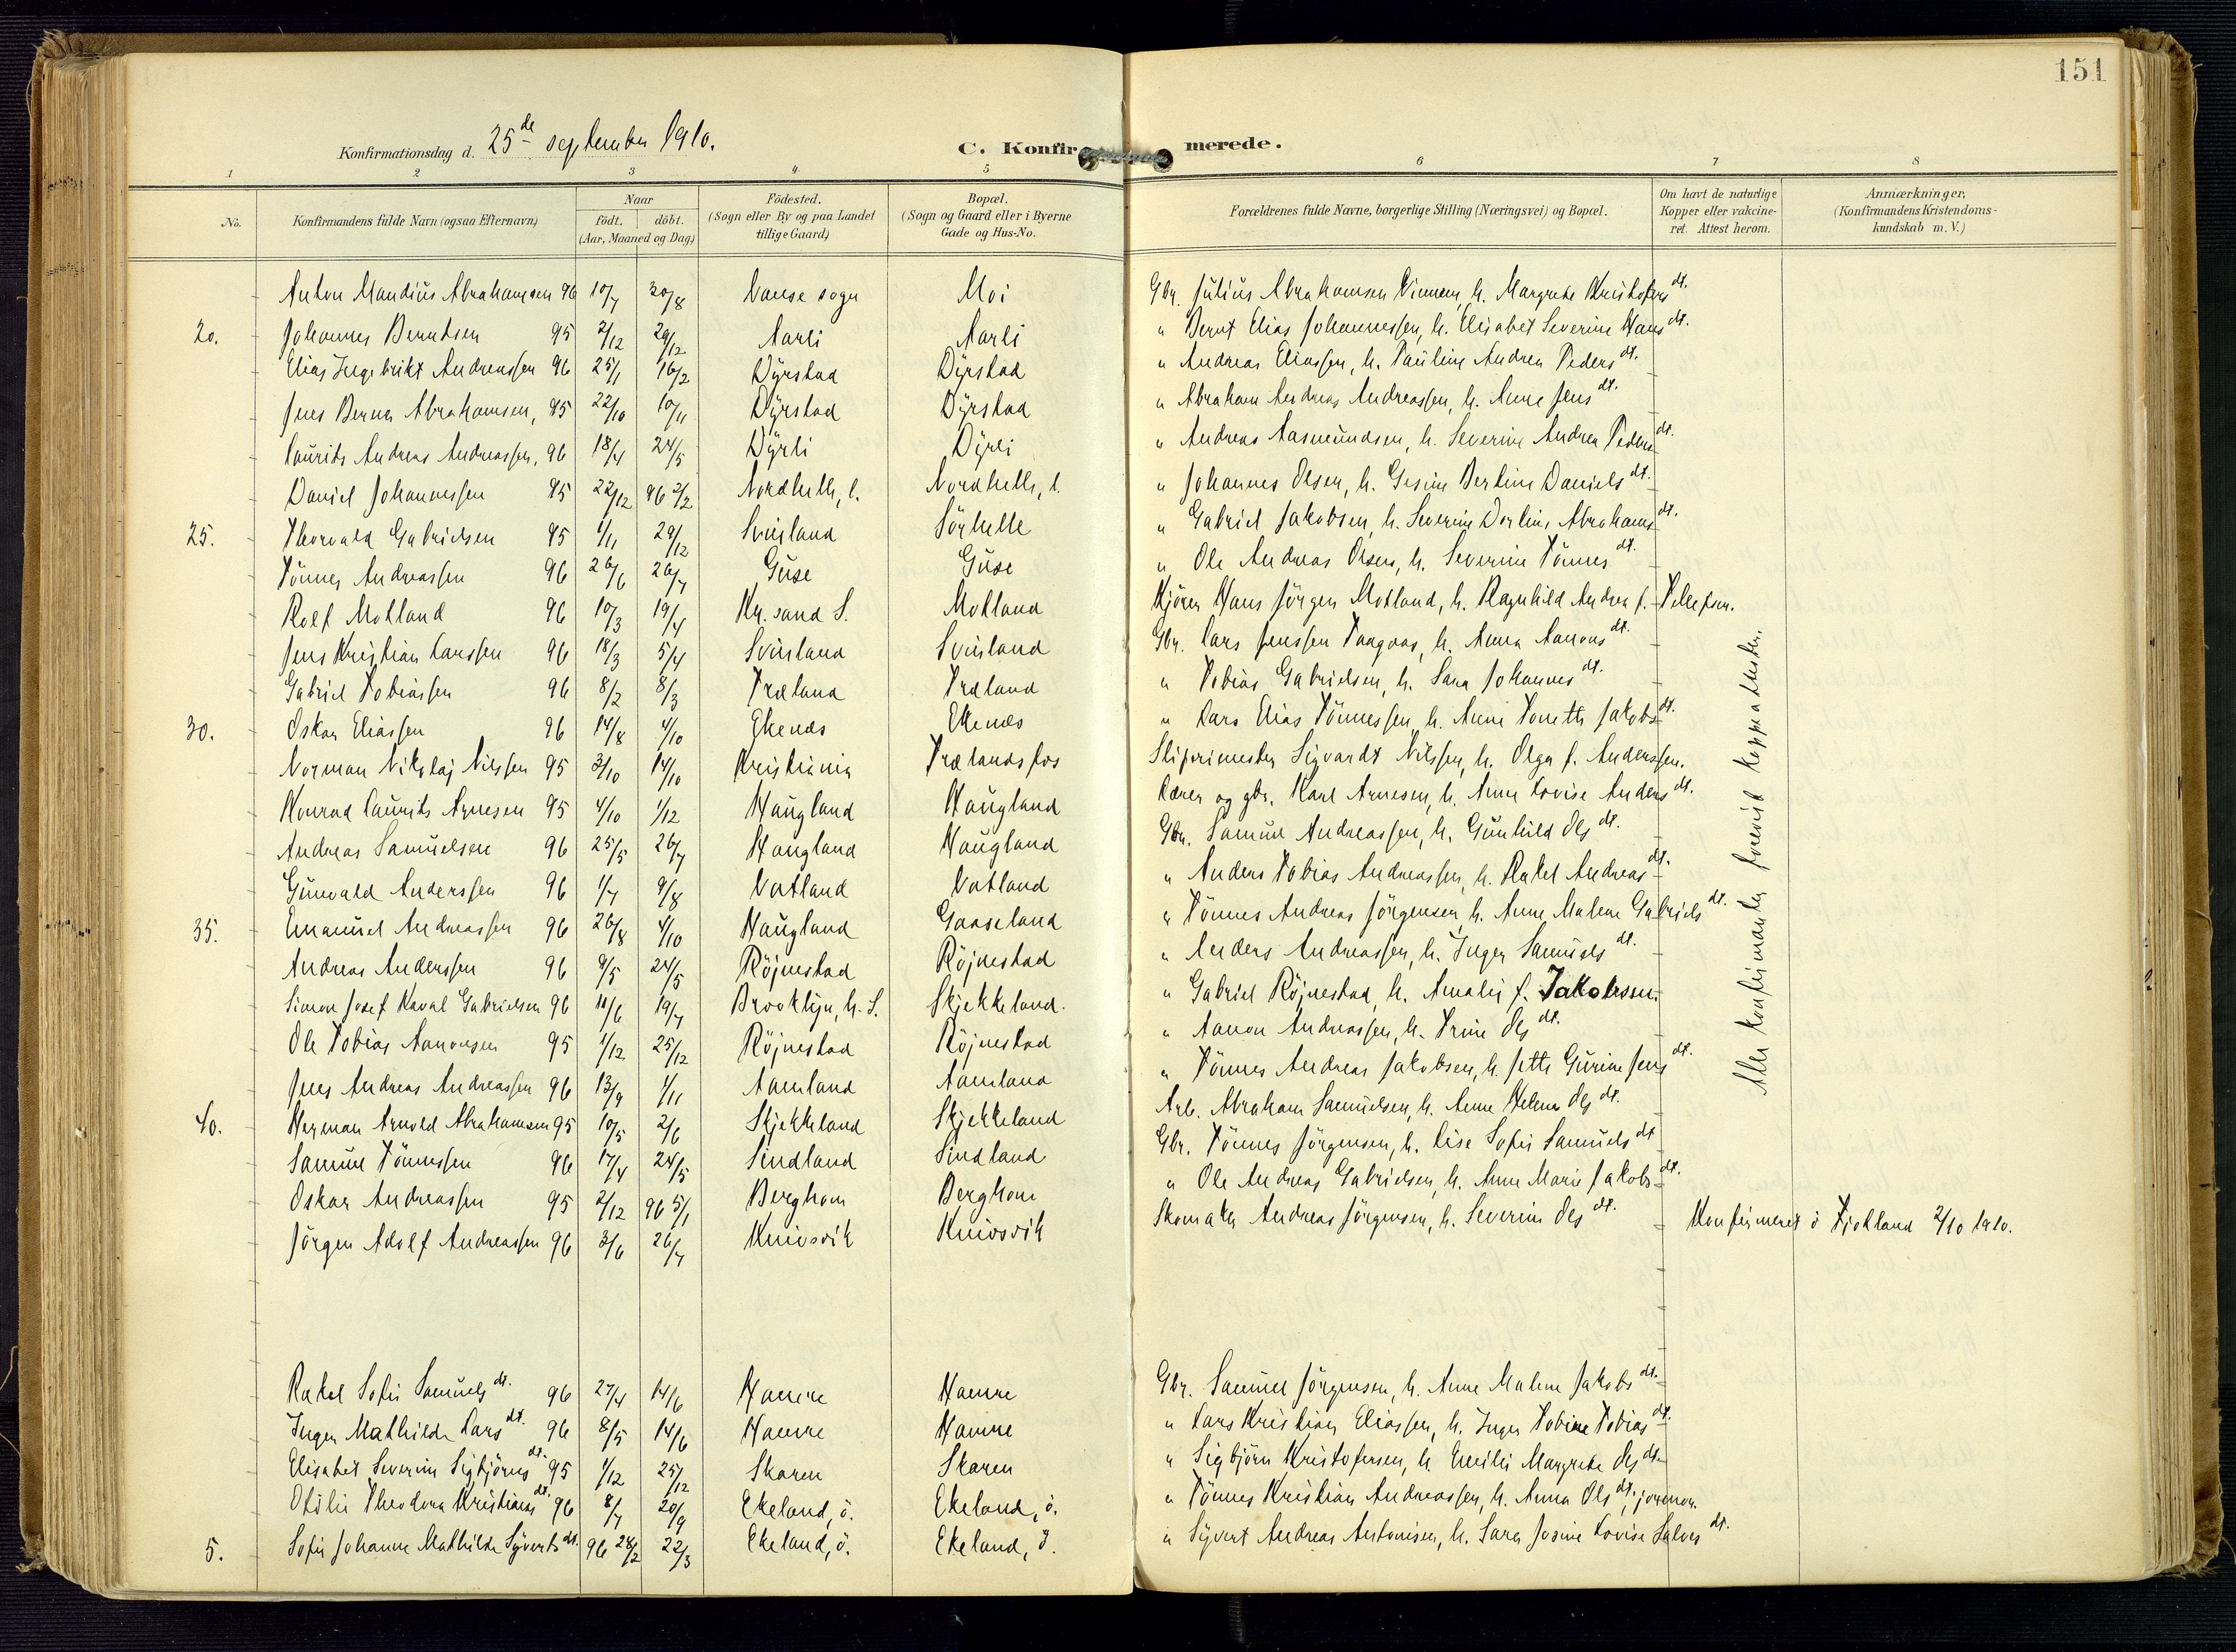 151
Konfirmationsdag d. 25de september 1910.
C. Konfirmerede.
1 2 3 4 5 6 7 8
No. Konfirmandens fulde Navn (ogsaa Efternavn) Naar født. døbt. (Aar, Maaned og Dag) Fødested. (Sogn eller By og paa Landet tillige Gaard) Bopæl. (Sogn og Gaard eller i Byerne Gade og Hus-No. Forældrenes fulde Navne, borgerlige Stilling (Næringsvei) og Bopæl. Om havt de naturlige Kopper eller vakcineret. Attest herom. Anmærkninger, (Konfirmandens Kristendomskundskab m. V.)
Anton Mandius Abrahamsen 96 10/7 30/8 Vanse sogn Moi Gbr. Julius Abrahamsen Vinnem, h. Margrete Kristofers dt.
20. Johannes Berntsen 95 2/12 29/12 Aarli Aarli " Bernt Elias Johannessen, h. Elisabet Severine Hans dt.
Elias Ingebrikt Andreassen 96 25/1 16/2 Dyrstad Dyrstad " Andreas Eliassen, h. Pauline Andrea Peders dt.
Jens Berner Abrahamsen, 95 22/10 10/11 Dyrstad Dyrstad " Abraham Andreas Andreassen, h. Anne Jens dt.
Laurits Andreas Andreassen, 96 18/4 24/5 Dyrli Dyrli " Andreas Aasmundsen, h. Severine Andrea Peders dt.
Daniel Johannessen 95 22/12 96 2/2 Nordhelle, l. Nordhelle, l. " Johannes Olsen, h. Gesine Bertine Daniels dt.
25. Thorvald Gabrielsen 95 1/11 29/12 Svinland Sörhelle " Gabriel Jakobsen, h. Severine Dorline Abrahams dt.
Tönnes Andreassen 96 26/6 26/7 Guse Guse " Ole Andreas Olsen, h. Severine Tönnes dt.
Rolf Motland 96 10/3 19/4 Kr. sand S. Motland Kjörer Hans Jörgen Motland, h. Ragnhild Andrea f. Tellefsen.
Jens Kristian Larssen 96 18/3 5/4 Svinland Svinland Gbr. Lars Jenssen Vaagaas, h. Anna Aanons dt.
Gabriel Tobiassen 96 8/2 8/3 Træland Træland " Tobias Gabrielsen, h. Sara Johannes dt.
30. Oskar Eliassen 96 14/8 4/10 Ekenæs Ekenæs " Lars Elias Tönnessen, h. Anne Tonette Jakobs dt.
Norman Nikolaj Nilssen 95 3/10 14/10 Kristiania Trælandsfos Sliperimester Sigvardt Nilssen, h. Olga f. Anderssen.
Konrad Laurits Arnesen 95 4/10 1/12 Haugland Haugland Lærer og gbr. Karl Arnesen, h. Anne Lovise Anders dt.
Andreas Samuelsen 96 25/5 26/7 Haugland Haugland Gbr. Samuel Andreassen, h. Gunhild Ols dt.
Gunvald Anderssen 96 1/7 9/8 Vatland Vatland " Anders Tobias Andreassen, h. Rakel Andreas dt.
35. Emanuel Andreassen 96 26/8 4/10 Haugland Gaaseland " Tönnes Andreas Jörgensen, h. Anne Malene Gabriels dt.
Andreas Anderssen 96 9/5 24/5 Röjnestad Röjnestad " Anders Andreassen, h. Inger Samuels dt.
Simon Josef Gabrielsen 96 11/6 19/7 Brooklyn, h. S. Skjekkeland. " Gabriel Röjnestad, h. Amalie f. Jakobssen.
Ole Tobias Aanonsen 95 1/12 25/12 Röjnestad Röjnestad " Aanon Andreassen, h. Trine Ols dt.
Jens Andreas Andreassen 96 13/9 1/11 Aamland Aamland " Tönnes Andreas Jakobsen, h. Jette Gurine Jens dt.
40. Herman Arnold Abrahamsen 95 10/5 2/6 Skjekkeland Skjekkeland Arb. Abraham Samuelsen, h. Anne Helene Ols dt.
Samuel Tönnessen 96 17/4 24/5 Sindland Sindland Gbr. Tönnes Jörgensen, h. Lise Sofie Samuels dt
Oskar Andreassen 95 2/12 96 5/1 Berghom Berghom " Ole Andreas Gabrielsen, h. Anne Marie Jakobs dt.
Jörgen Adolf Andreassen 96 3/6 26/7 Knivsvik Knivsvik Skomaker Andreas Jörgensen, h. Severine Ols dt. Konfirmeret i Fjotland 2/10 1910.
Alle konfirmanter forevist koppeattester.
Rakel Sofie Samuels dt. 96 27/4 14/6 Hamre Hamre Gbr. Samuel Jörgensen, h. Anne Malene Jakobs dt.
Inger Mathilde Lars dt. 96 8/5 14/6 Hamre Hamre " Lars Kristian Eliassen, h. Inger Tobine Tobias dt.
Elisabet Severine Sigbjörns dt. 95 1/12 25/12 Skaren Skaren " Sigbjörn Kristofersen, h. Emilie Margrete Ols dt.
Otilie Theodora Kristians dt. 96 8/7 20/9 Ekeland, ö. Ekeland, ö. " Tönnes Kristian Andreassen, h. Anna Ols dt., jormor.
5. Sofie Johanne Mathilde Syverts dt. 96 28/2 22/3 Ekeland, ö. Ekeland, ö. " Syvert Andreas Antonisen, h. Sara Josine Lovise Salves dt.